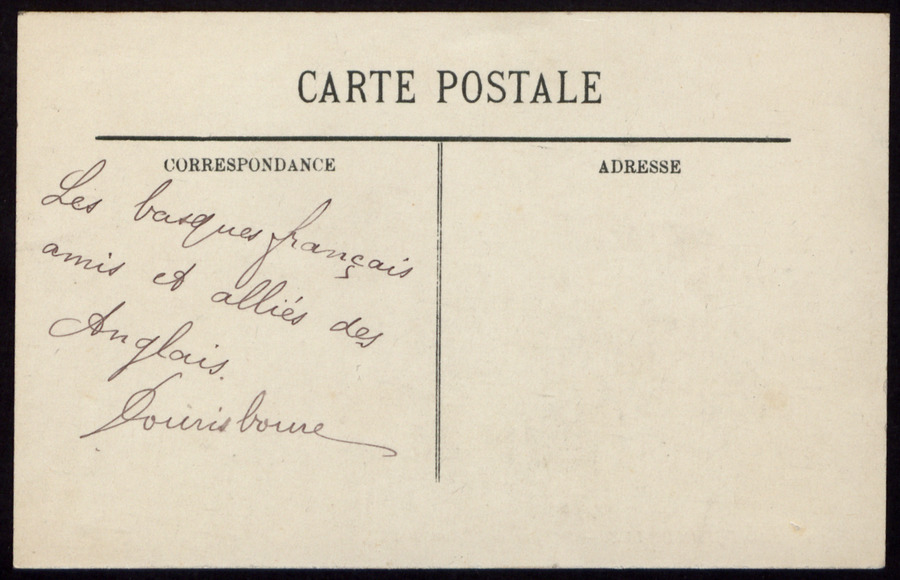 CARTE POSTALE
CORRESPONDANCE
ADRESSE
Les basques français
amis et alliés des
Anglais.
Dourisboure